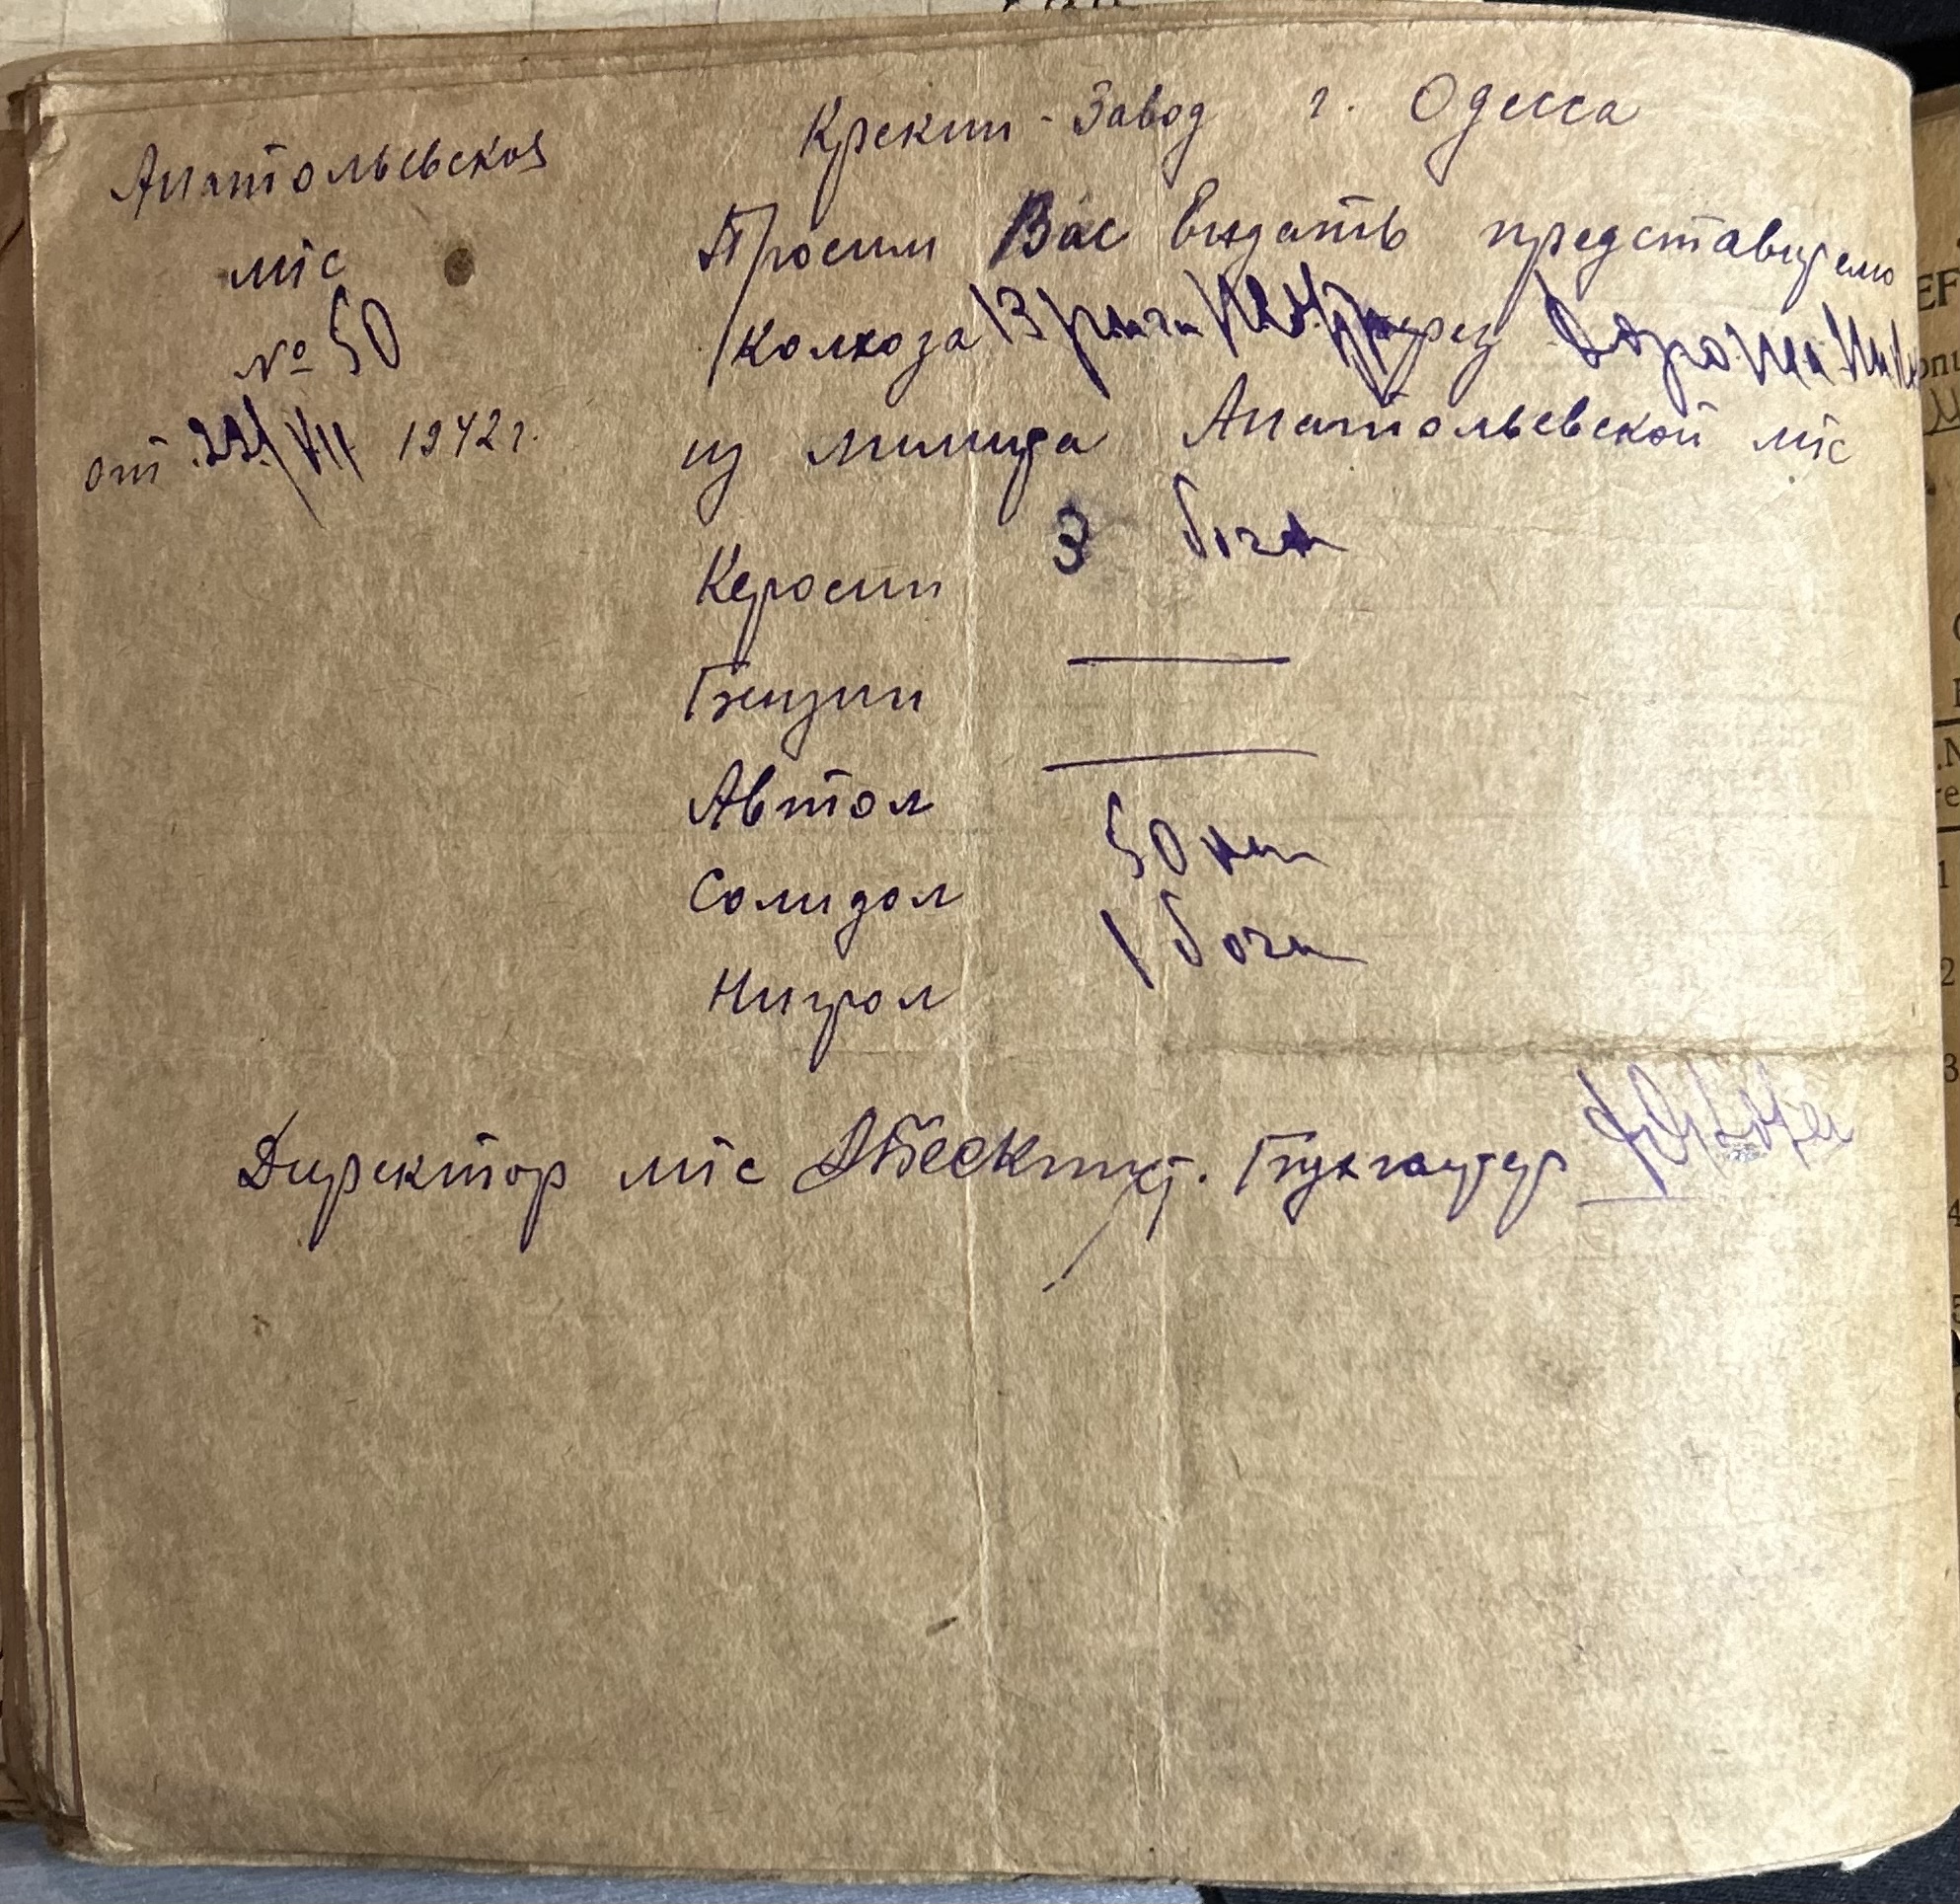 Анатольевская
мтс
№ 50
от 22/VII 1942 г.
Крекин-завод г. Одесса
Просим Вас выдать представителю
Колхоза через
из лимита Анатольевской мтс
Керосин 3 бочк
Бензин —
Автол —
Солидол 50 кг
Нигрол 1 бочк
Директор мтс Бухгалтер